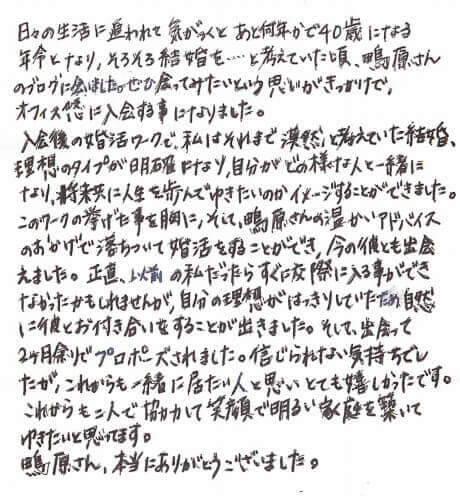 日々の生活に追われて気がつくとあと何年かで40歳になる
年令となり、そろそろ結婚を…と考えていた頃、鴨原さん
のブログに会いました。ぜひ会ってみたいという思いがきっかけで、
オフィス悠に入会する事になりました。
入会後の婚活ワークで、私はそれまで漠然と考えていた結婚、
理想のタイプが明確になり、自分がどの様な人と一緒に
なり、将来共に人生を歩んでゆきたいのかイメージすることができました。
このワークの挙げた事を胸に、そして、鴨原さんの温かいアドバイス
のおかげで落ちついて婚活をすることができ、今の彼とも出会
えました。正直、以前の私だったらすぐに交際に入る事ができ
なかったかもしれませんが、自分の理想がはっきりしていたため自然
に彼とお付き合いをすることが出きました。そして、出会って
2ヶ月余りでプロポーズされました。信じられない気持ちでし
たが、これからも一緒に居たい人と思いとても嬉しかったです。
これからも二人で協力して笑顔で明るい家庭を築いて
ゆきたいと思ってます。
鴨原さん、本当にありがとうございました。